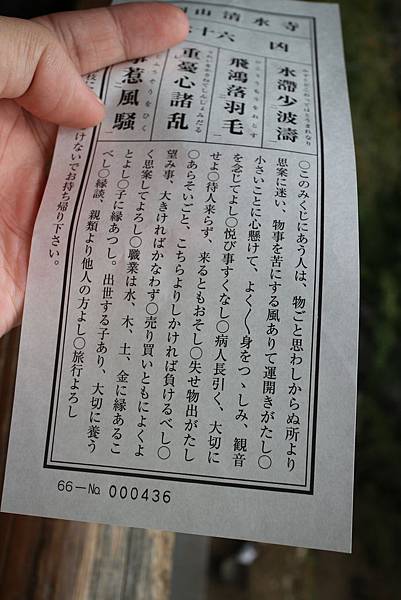 山清水寺
十六 凶
水滞少波濤
みずとどこおってはとうまれなり
飛鴻落羽毛
ひこううもうをおとす
重憂心諸乱
惹風騒
ふうそうをひく
○このみくじにあう人は、物ごと思わしからぬ所より
思案に迷い、物事を苦にする風ありて運開きがたし○
小さいことに心懸けて、よく〱身をつゝしみ、観音
を念じてよし○悦び事すくなし○病人長引く、大切に
せよ○待人来らず、来るともおそし○失せ物出がたし
○あらそいごと、こちらよりしかければ負けるべし○
望み事、大きければかなわず○売り買いともによくよ
く思案してよろし○職業は水、木、土、金に縁あるこ
とよし○子に縁あつし。出世する子あり、大切に養う
べし○縁談、親類より他人の方よし○旅行よろし
けないでお持ち帰り下さい。
66－№ 000436